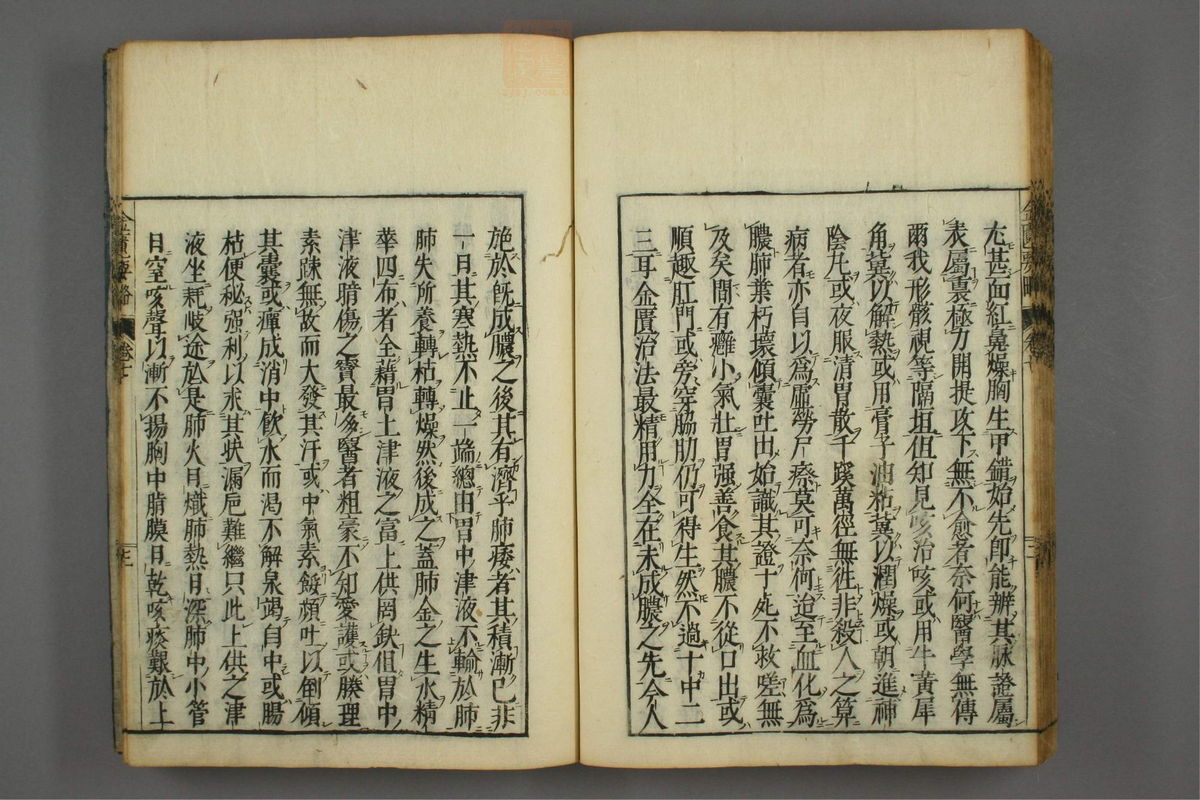 尤甚面紅鼻燥胸生甲錯始先即能辨其脉證屬
表屬裏極力開提攻下無不愈者奈何醫學無傳
爾我形骸視等隔垣但知見咳治咳或用牛黃犀
角冀以解熱或用膏子油粘冀以潤燥或朝進神
陰丸或夜服清胃散千蹊萬徑無徃非殺人之算
病者亦自以爲虛勞尸瘵莫可奈何迨至血化爲
膿肺葉朽壞傾囊吐出始識其證十死不救嗟無
及矣間有癰小氣壯胃强善食其膿不從口出或
順趣肛門或旁穿脇肋仍可得生然不過十中二
三耳金匱治法最精用力全在未成膿之先今人
施於旣成膿之後其有濟乎肺痿者其積漸已非
一日其寒熱不止一端總由胃中津液不輸於肺
肺失所養轉枯轉燥然後成之蓋肺金之生水精
華四布者全藉胃土津液之富上供罔缺但胃中
津液暗傷之竇最多醫者粗豪不知愛護或腠理
素疎無故而大發其汗或中氣素餒頻吐以倒傾
其囊或癉成消中飮水而渴不解泉竭自中或腸
枯便秘强利以求其快漏巵難繼只此上供之津
液坐耗岐途於是肺火日熾肺熱日深肺中小管
日窒咳聲以漸不揚胸中脂膜日乾咳痰艱於上
金匱要略
卷七
金匱要略
卷七